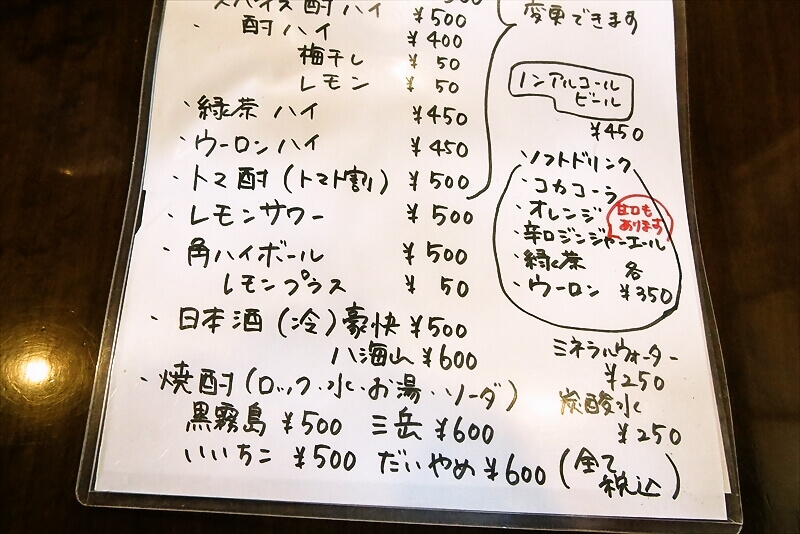 スパイス酎ハイ ¥500
酎ハイ ¥400
梅干し ¥50
レモン ¥50
・緑茶ハイ ¥450
・ウーロンハイ ¥450
・トマ酎(トマト割) ¥500
・レモンサワー ¥500
・角ハイボール ¥500
レモンプラス ¥50
・日本酒(冷)豪快 ¥500
八海山 ¥600
・焼酎(ロック・水・お湯・ソーダ)
黒霧島 ¥500 三岳 ¥600
いいちこ ¥500 だいやめ ¥600
変更できます
ノンアルコール
ビール
¥450
ソフトドリンク
・コカコーラ
・オレンジ
甘口も
あります
・辛口ジンジャーエール
・緑茶 各
・ウーロン ¥350
ミネラルウォーター
¥250
炭酸水
¥250
(全て
税込)